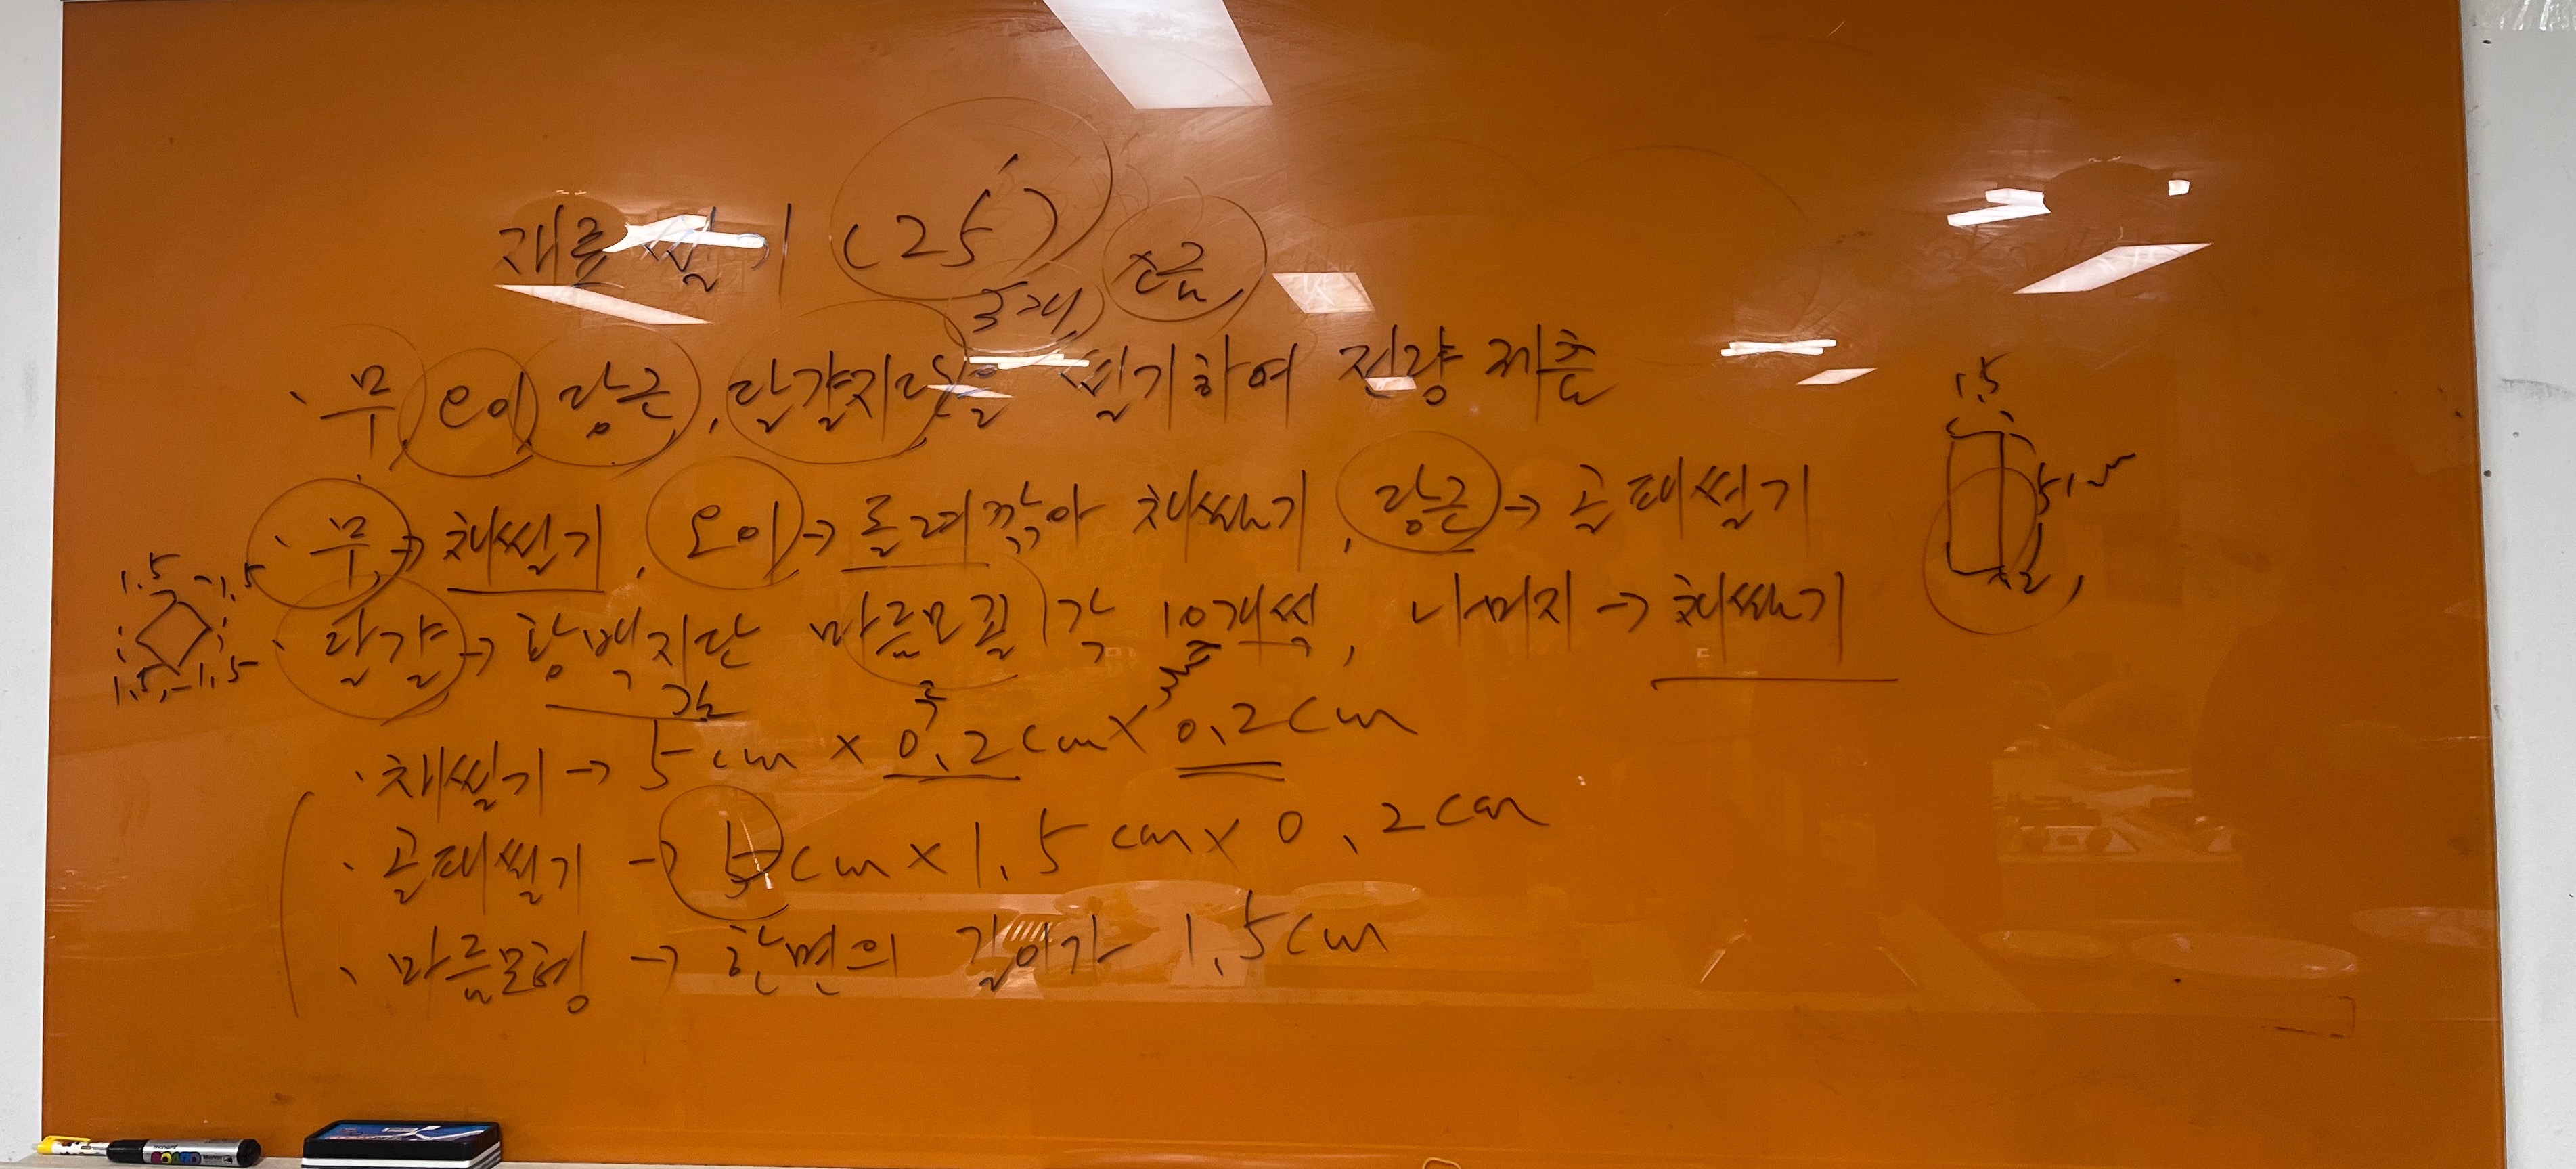 재료썰기 (25')
소금
3개
· 무, 오이, 당근, 달걀지단을 썰기하여 전량 제출
· 무 → 채썰기, 오이 → 돌려깎아 채썰기, 당근 → 골패썰기
· 달걀 → 황백지단 마름모꼴 각 10개씩, 나머지 → 채썰기
· 채썰기 → 5cm × 0.2cm × 0.2cm
· 골패썰기 → 5cm × 1.5cm × 0.2cm
· 마름모형 → 한면의 길이가 1.5cm
1.5 1.5
1.5 1.5
1.5